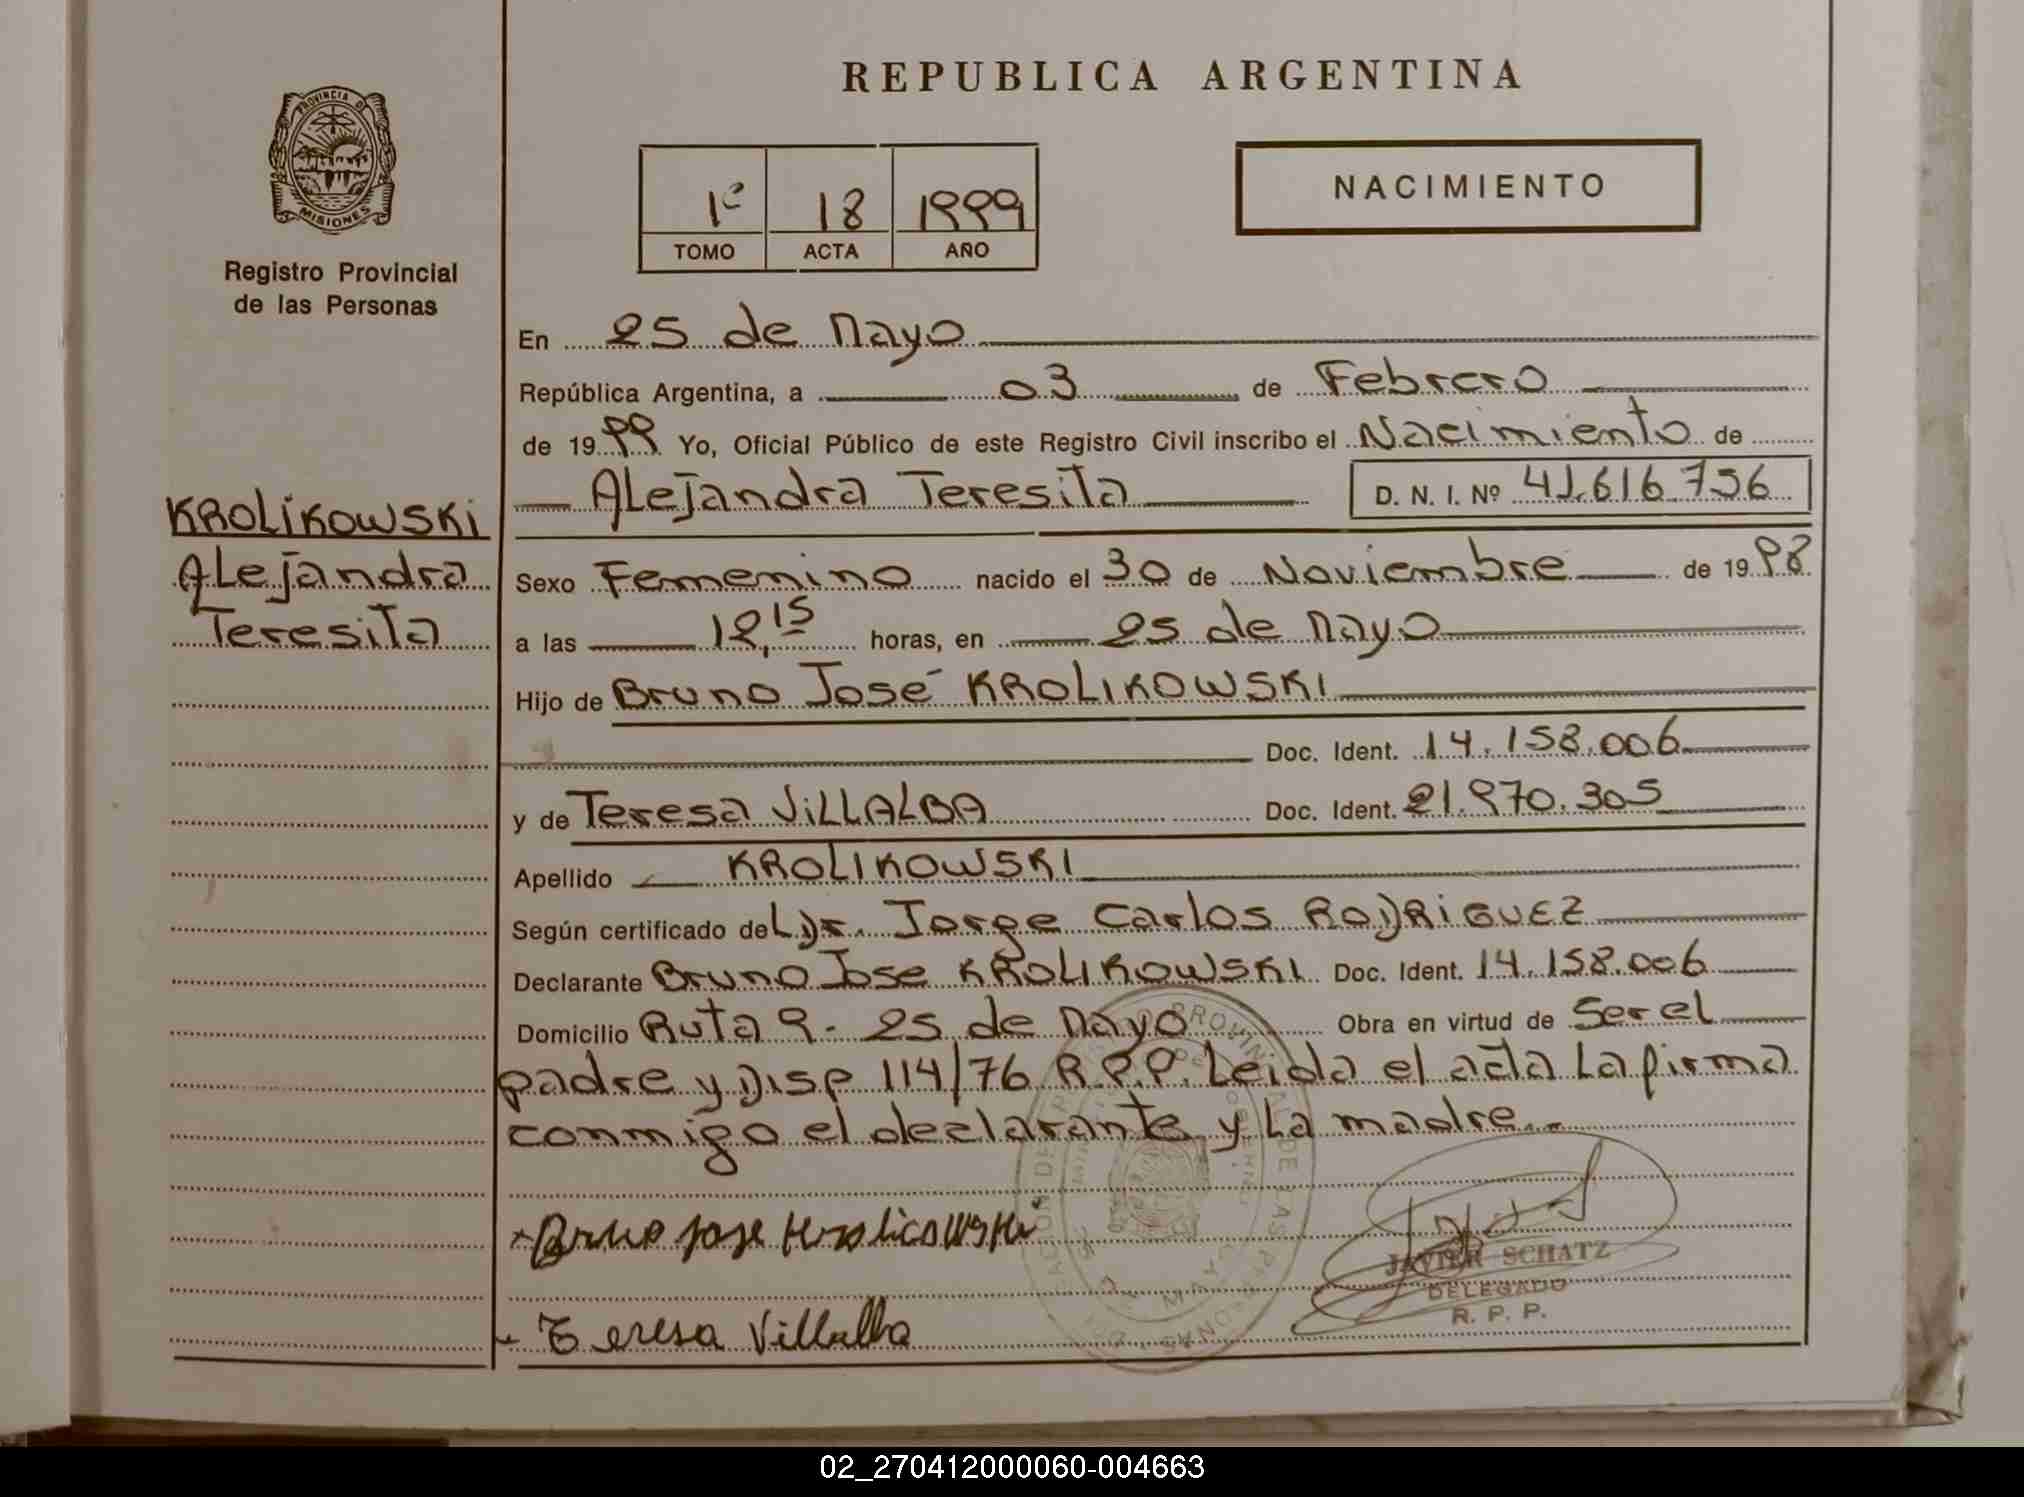 REPUBLICA ARGENTINA
PROVINCIA DE
MISIONES
Registro Provincial
de las Personas
1º 18 1999
TOMO ACTA AÑO
NACIMIENTO
En 25 de Mayo
República Argentina, a 03 de Febrero
de 1999 Yo, Oficial Público de este Registro Civil inscribo el Nacimiento de
Alejandra Teresita D. N. I. Nº 41.616.756
KROLIKOWSKI
Alejandra
Teresita
Sexo Femenino nacido el 30 de Noviembre de 1998
a las 12,15 horas, en 25 de Mayo
Hijo de Bruno José KROLIKOWSKI
Doc. Ident. 14.158.006
y de Teresa VILLALBA Doc. Ident. 21.970.305
Apellido KROLIKOWSKI
Según certificado del Dr. Jorge Carlos RODRIGUEZ
Declarante Bruno Jose KROLIKOWSKI Doc. Ident. 14.158.006
Domicilio Ruta 9 - 25 de Mayo Obra en virtud de Ser el
padre y Disp 114/76 R.P.P. Leida el acta La firma
conmigo el declarante y La madre..
Bruno Jose Krolicowski
JAVIER SCHATZ
DELEGADO
R. P. P.
Teresa Villalba
02_270412000060-004663